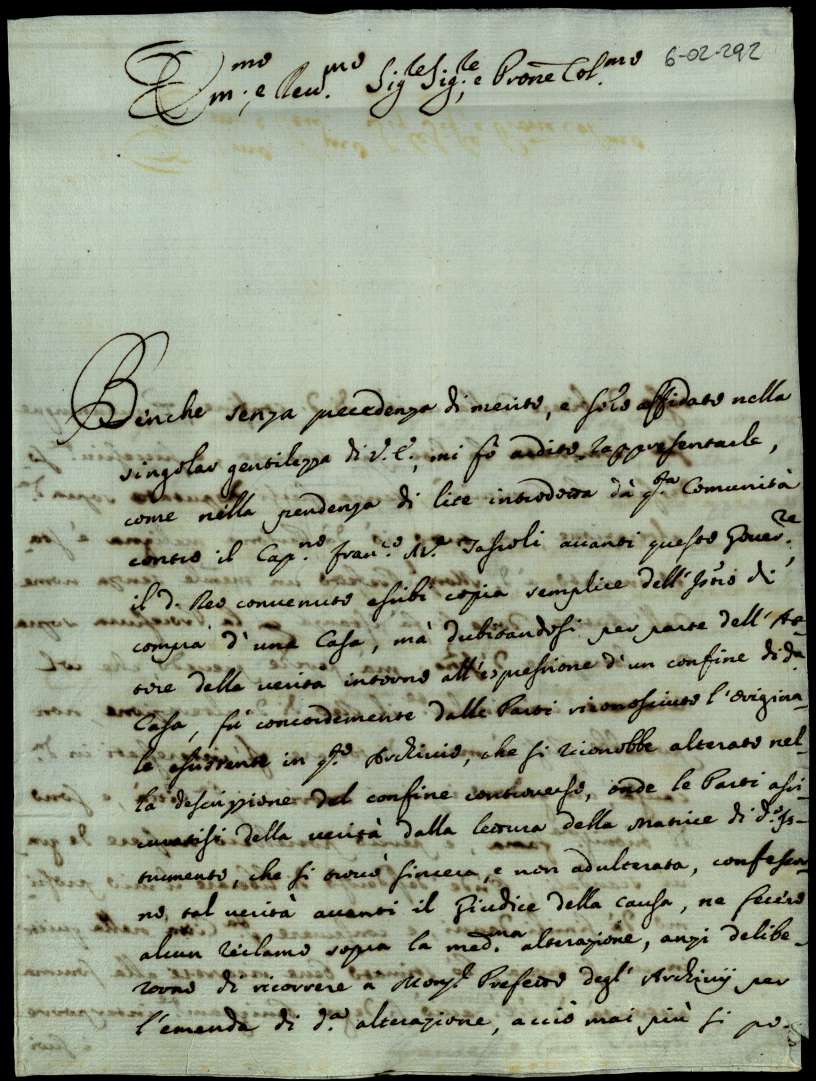 6-02-292
Em.mo e Rev.mo Sig.re Sig.re e Prone Col.mo
Benche senza precedenza di merito, e solo affidato nella
singolar gentilezza di V.E., mi fò ardito rappresentarle,
come nella pendenza di lite introdotta dà q.ta Comunità
contro il Cap.no Fran.co M.a Tassoli avanti questo Gover.re
il d. Reo convenuto esibì copia semplice dell'Istro di
compra d'una Casa, mà dubitandosi per parte dell'At-
tore della verità intorno all'espressione d'un confine di d.a
Casa, fù concordemente dalle Parti riconosciuto l'origina-
le esistente in q.to Archivio, che si riconobbe alterato nel-
la descrizzione del confine controverso, onde le Parti assi-
curatisi della verità dalla lettura della Matrice di d.o Is-
trumento, che si trovò sincera, e non adulterata, confessor-
no tal verità avanti il Giudice della Causa, ne fecero
alcun reclamo sopra la med.ma alterazione, anzi delibe-
rorno di ricorrere a Mons.r Prefetto degl'Archivij per
l'emenda di d.a alterazione, acciò mai più si po-